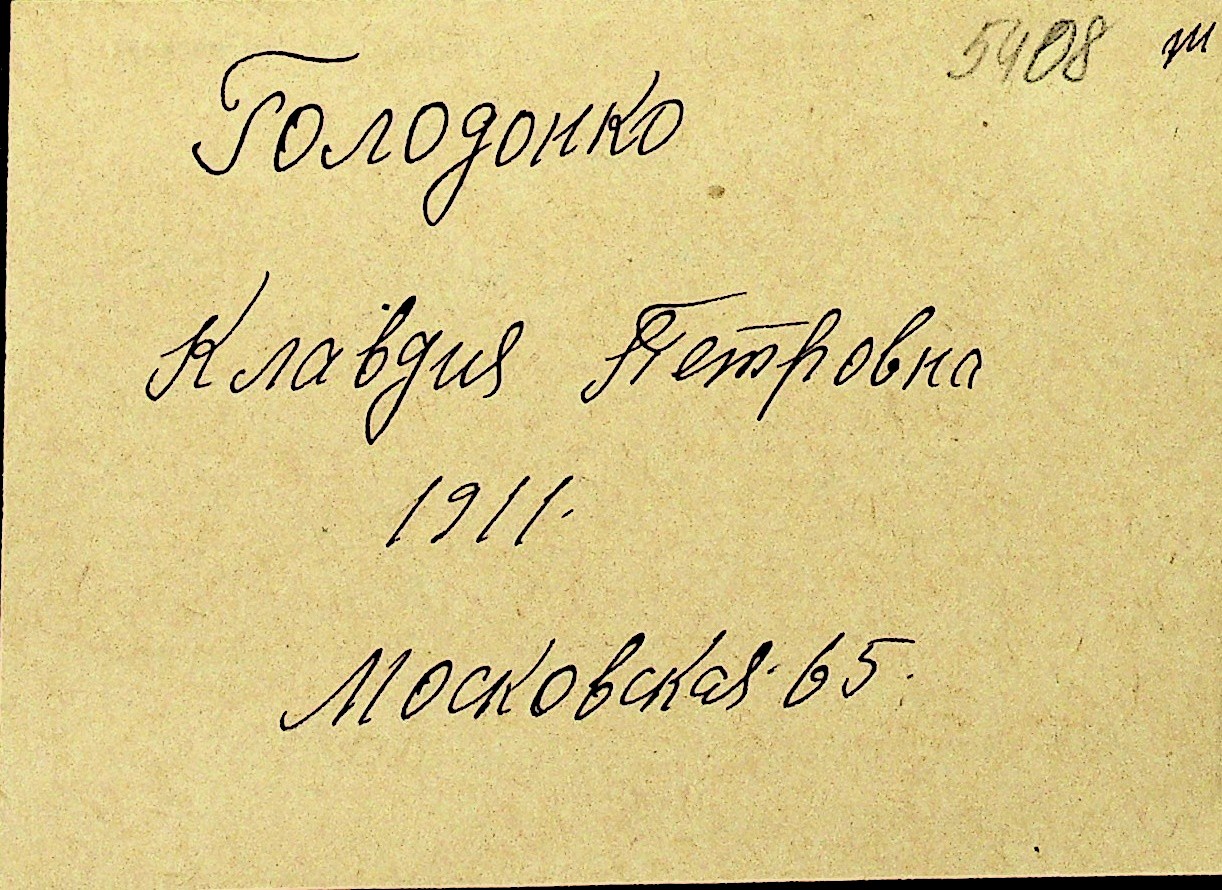 5408
Голодонко
Клавдия Петровна
1911.
Московская. 65.